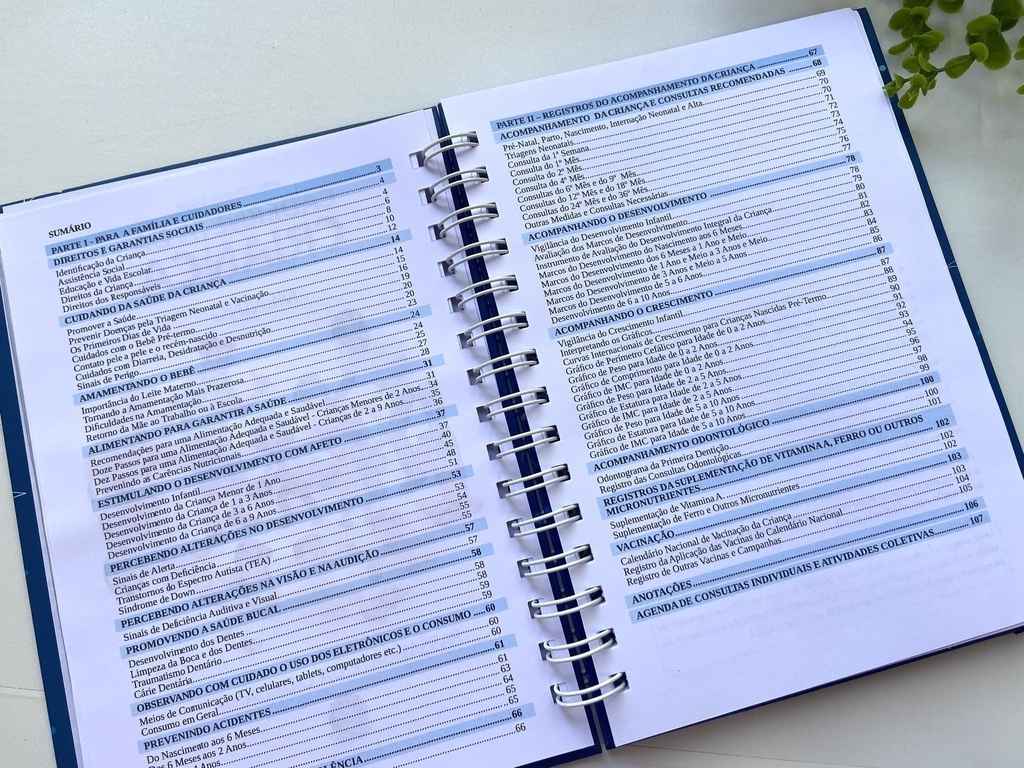 SUMÁRIO
PARTE I - PARA A FAMÍLIA E CUIDADORES 3
DIREITOS E GARANTIAS SOCIAIS 4
Identificação da Criança 4
Assistência Social 6
Educação e Vida Escolar 8
Direitos da Criança 10
Direitos dos Responsáveis 12
CUIDANDO DA SAÚDE DA CRIANÇA 14
Promover a Saúde 14
Prevenir Doenças pela Triagem Neonatal e Vacinação 15
Os Primeiros Dias de Vida 16
Cuidados com o Bebê Pré-termo 19
Contato pele a pele e o recém-nascido 20
Cuidados com Diarreia, Desidratação e Desnutrição 20
Sinais de Perigo 23
AMAMENTANDO O BEBÊ 24
Importância do Leite Materno 24
Tornando a Amamentação Mais Prazerosa 25
Dificuldades na Amamentação 27
Retorno da Mãe ao Trabalho ou à Escola 28
ALIMENTANDO PARA GARANTIR A SAÚDE 31
Recomendações para uma Alimentação Adequada e Saudável 31
Doze Passos para uma Alimentação Adequada e Saudável - Crianças Menores de 2 Anos 34
Dez Passos para uma Alimentação Adequada e Saudável - Crianças de 2 a 9 Anos 35
Prevenindo as Carências Nutricionais 36
ESTIMULANDO O DESENVOLVIMENTO COM AFETO 37
Desenvolvimento Infantil 37
Desenvolvimento da Criança Menor de 1 Ano 40
Desenvolvimento da Criança de 1 a 3 Anos 45
Desenvolvimento da Criança de 3 a 6 Anos 48
Desenvolvimento da Criança de 6 a 9 Anos 51
PERCEBENDO ALTERAÇÕES NO DESENVOLVIMENTO
Sinais de Alerta 53
Crianças com Deficiência 54
Transtornos do Espectro Autista (TEA) 55
Síndrome de Down 55
PERCEBENDO ALTERAÇÕES NA VISÃO E NA AUDIÇÃO 57
Sinais de Deficiência Auditiva e Visual 57
PROMOVENDO A SAÚDE BUCAL 58
Desenvolvimento dos Dentes 58
Limpeza da Boca e dos Dentes 58
Traumatismo Dentário 59
Cárie Dentária 59
OBSERVANDO COM CUIDADO O USO DOS ELETRÔNICOS E O CONSUMO 60
Meios de Comunicação (TV, celulares, tablets, computadores etc.) 60
Consumo em Geral 60
PREVENINDO ACIDENTES 61
Do Nascimento aos 6 Meses 61
Dos 6 Meses aos 2 Anos 63
PARTE II – REGISTROS DO ACOMPANHAMENTO DA CRIANÇA 67
ACOMPANHAMENTO DA CRIANÇA E CONSULTAS RECOMENDADAS 68
Pré-Natal, Parto, Nascimento, Internação Neonatal e Alta 69
Triagens Neonatais 70
Consulta da 1ª Semana 70
Consulta do 1º Mês 71
Consulta do 2º Mês 72
Consulta do 4º Mês 73
Consultas do 6º Mês e do 9º Mês 74
Consultas do 12º Mês e do 18º Mês 75
Consultas do 24º Mês e do 36º Mês 76
Outras Medidas e Consultas Necessárias 77
ACOMPANHANDO O DESENVOLVIMENTO 78
Vigilância do Desenvolvimento Infantil 78
Avaliação dos Marcos de Desenvolvimento 79
Instrumento de Avaliação do Desenvolvimento Integral da Criança 80
Marcos do Desenvolvimento do Nascimento aos 6 Meses 81
Marcos do Desenvolvimento dos 6 Meses a 1 Ano e Meio 82
Marcos do Desenvolvimento de 1 Ano e Meio a 3 Anos e Meio 83
Marcos do Desenvolvimento de 3 Anos e Meio a 5 Anos 84
Marcos do Desenvolvimento de 5 a 6 Anos 85
Desenvolvimento de 6 a 10 Anos 86
ACOMPANHANDO O CRESCIMENTO 87
Vigilância do Crescimento Infantil 87
Interpretando os Gráficos 88
Curvas Internacionais de Crescimento para Crianças Nascidas Pré-Termo 89
Gráfico de Perímetro Cefálico para Idade de 0 a 2 Anos 90
Gráfico de Peso para Idade de 0 a 2 Anos 91
Gráfico de Comprimento para Idade de 0 a 2 Anos 92
Gráfico de IMC para Idade de 0 a 2 Anos 93
Gráfico de Peso para Idade de 2 a 5 Anos 94
Gráfico de Estatura para Idade de 2 a 5 Anos 95
Gráfico de IMC para Idade de 2 a 5 Anos 96
Gráfico de Peso para Idade de 5 a 10 Anos 97
Gráfico de Estatura para Idade de 5 a 10 Anos 98
Gráfico de IMC para Idade de 5 a 10 Anos 99
ACOMPANHAMENTO ODONTOLÓGICO 100
Odontograma da Primeira Dentição 100
Registro das Consultas Odontológicas 101
REGISTROS DA SUPLEMENTAÇÃO DE VITAMINA A, FERRO OU OUTROS
MICRONUTRIENTES 102
Suplementação de Vitamina A 102
Suplementação de Ferro e Outros Micronutrientes 102
VACINAÇÃO 103
Calendário Nacional de Vacinação da Criança 103
Registro da Aplicação das Vacinas do Calendário Nacional 104
Registro de Outras Vacinas e Campanhas 105
ANOTAÇÕES 106
AGENDA DE CONSULTAS INDIVIDUAIS E ATIVIDADES COLETIVAS 107